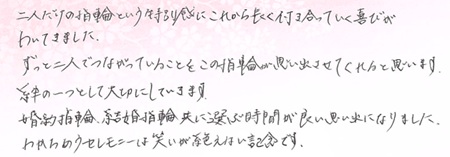 二人だけの指輪という特別感にこれから長く付き合っていく喜びが
わいてきました。
ずっと二人でつながっていることをこの指輪が思い出させてくれると思います。
絆の一つとして大切にしています。
婚約指輪、結婚指輪共に選ぶ時間が良い思い出になりました。
わかちあうセレモニーは笑いが絶えない記念です。